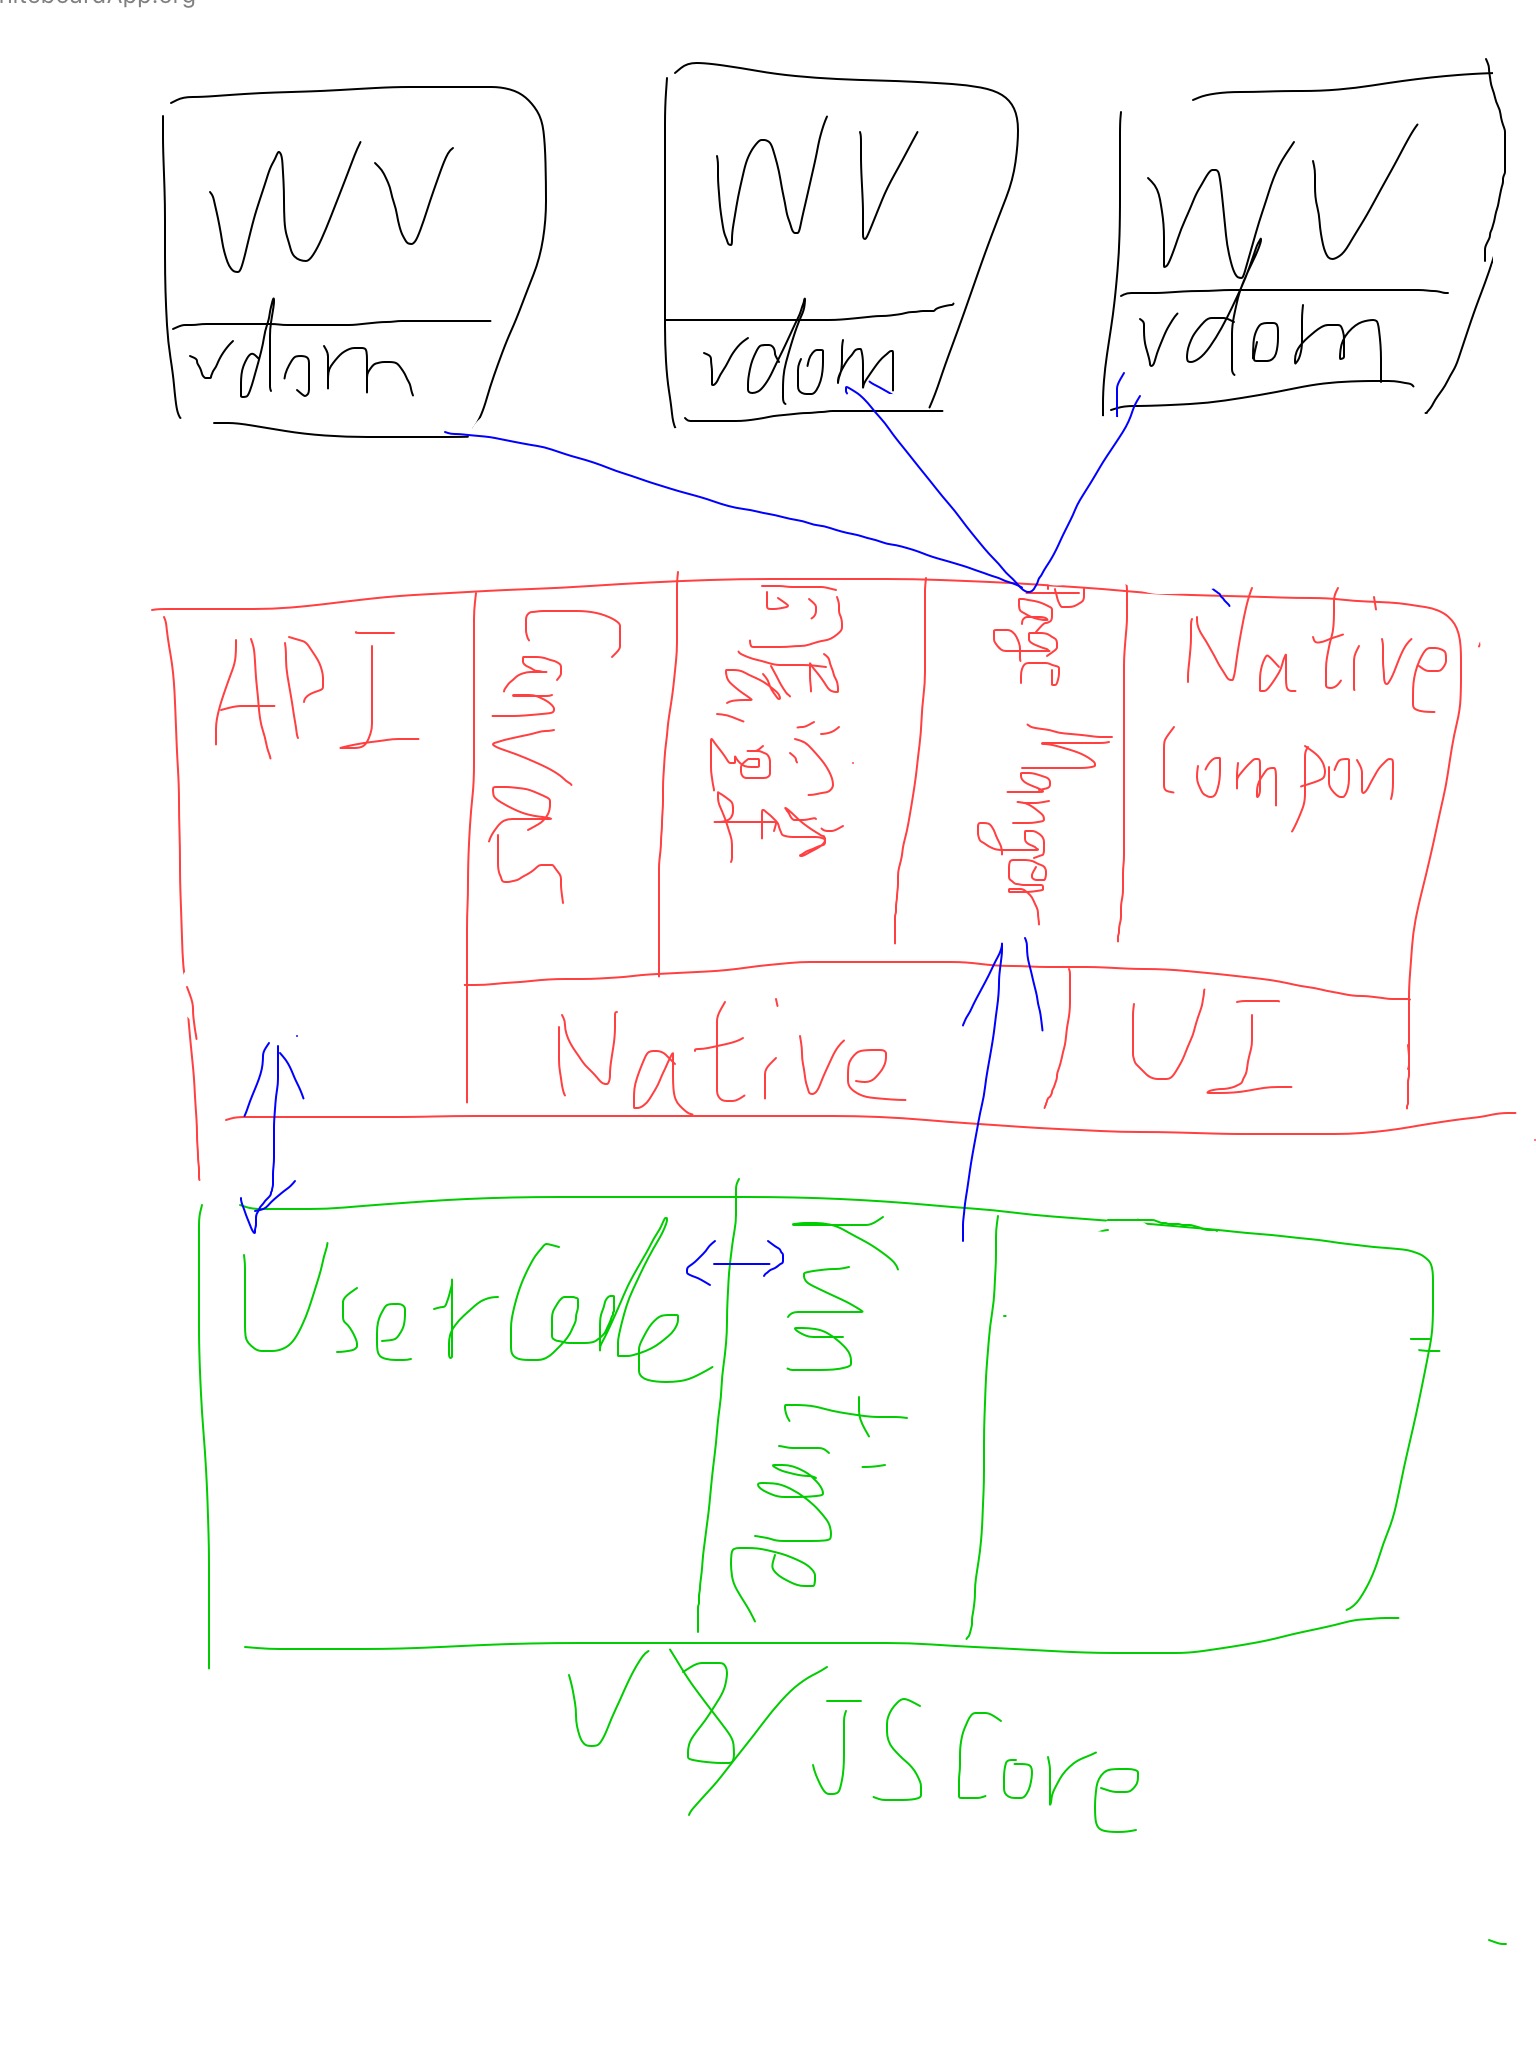 niteboardApp.org
WV
WV
WV
vdom
vdom
vdom
API
Canvas
Page Manger
Native
Compon
Native
UI
UserCode
V8/JSCore